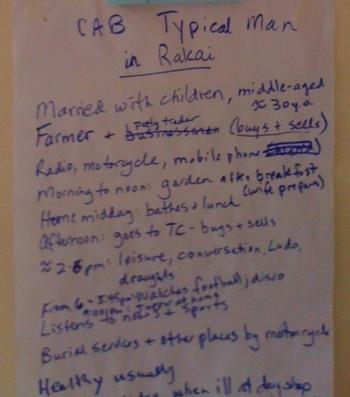 CAB Typical Man
in Rakai
Married with children, middle-aged
≈ 30 y.o.
Petty trader
Farmer + businessman (buys + sells)
Radio, motorcycle, mobile phone
Morning to noon: garden after breakfast
(wife prepares)
Home midday: bathes + lunch
Afternoon: goes to TC - buys + sells
≈ 2-6 pm: leisure, conversation, Ludo,
draughts
From 6 - watches football, disco
Listens to news + sports
Burial services + other places by motorcycle
Healthy usually
when ill at day shop